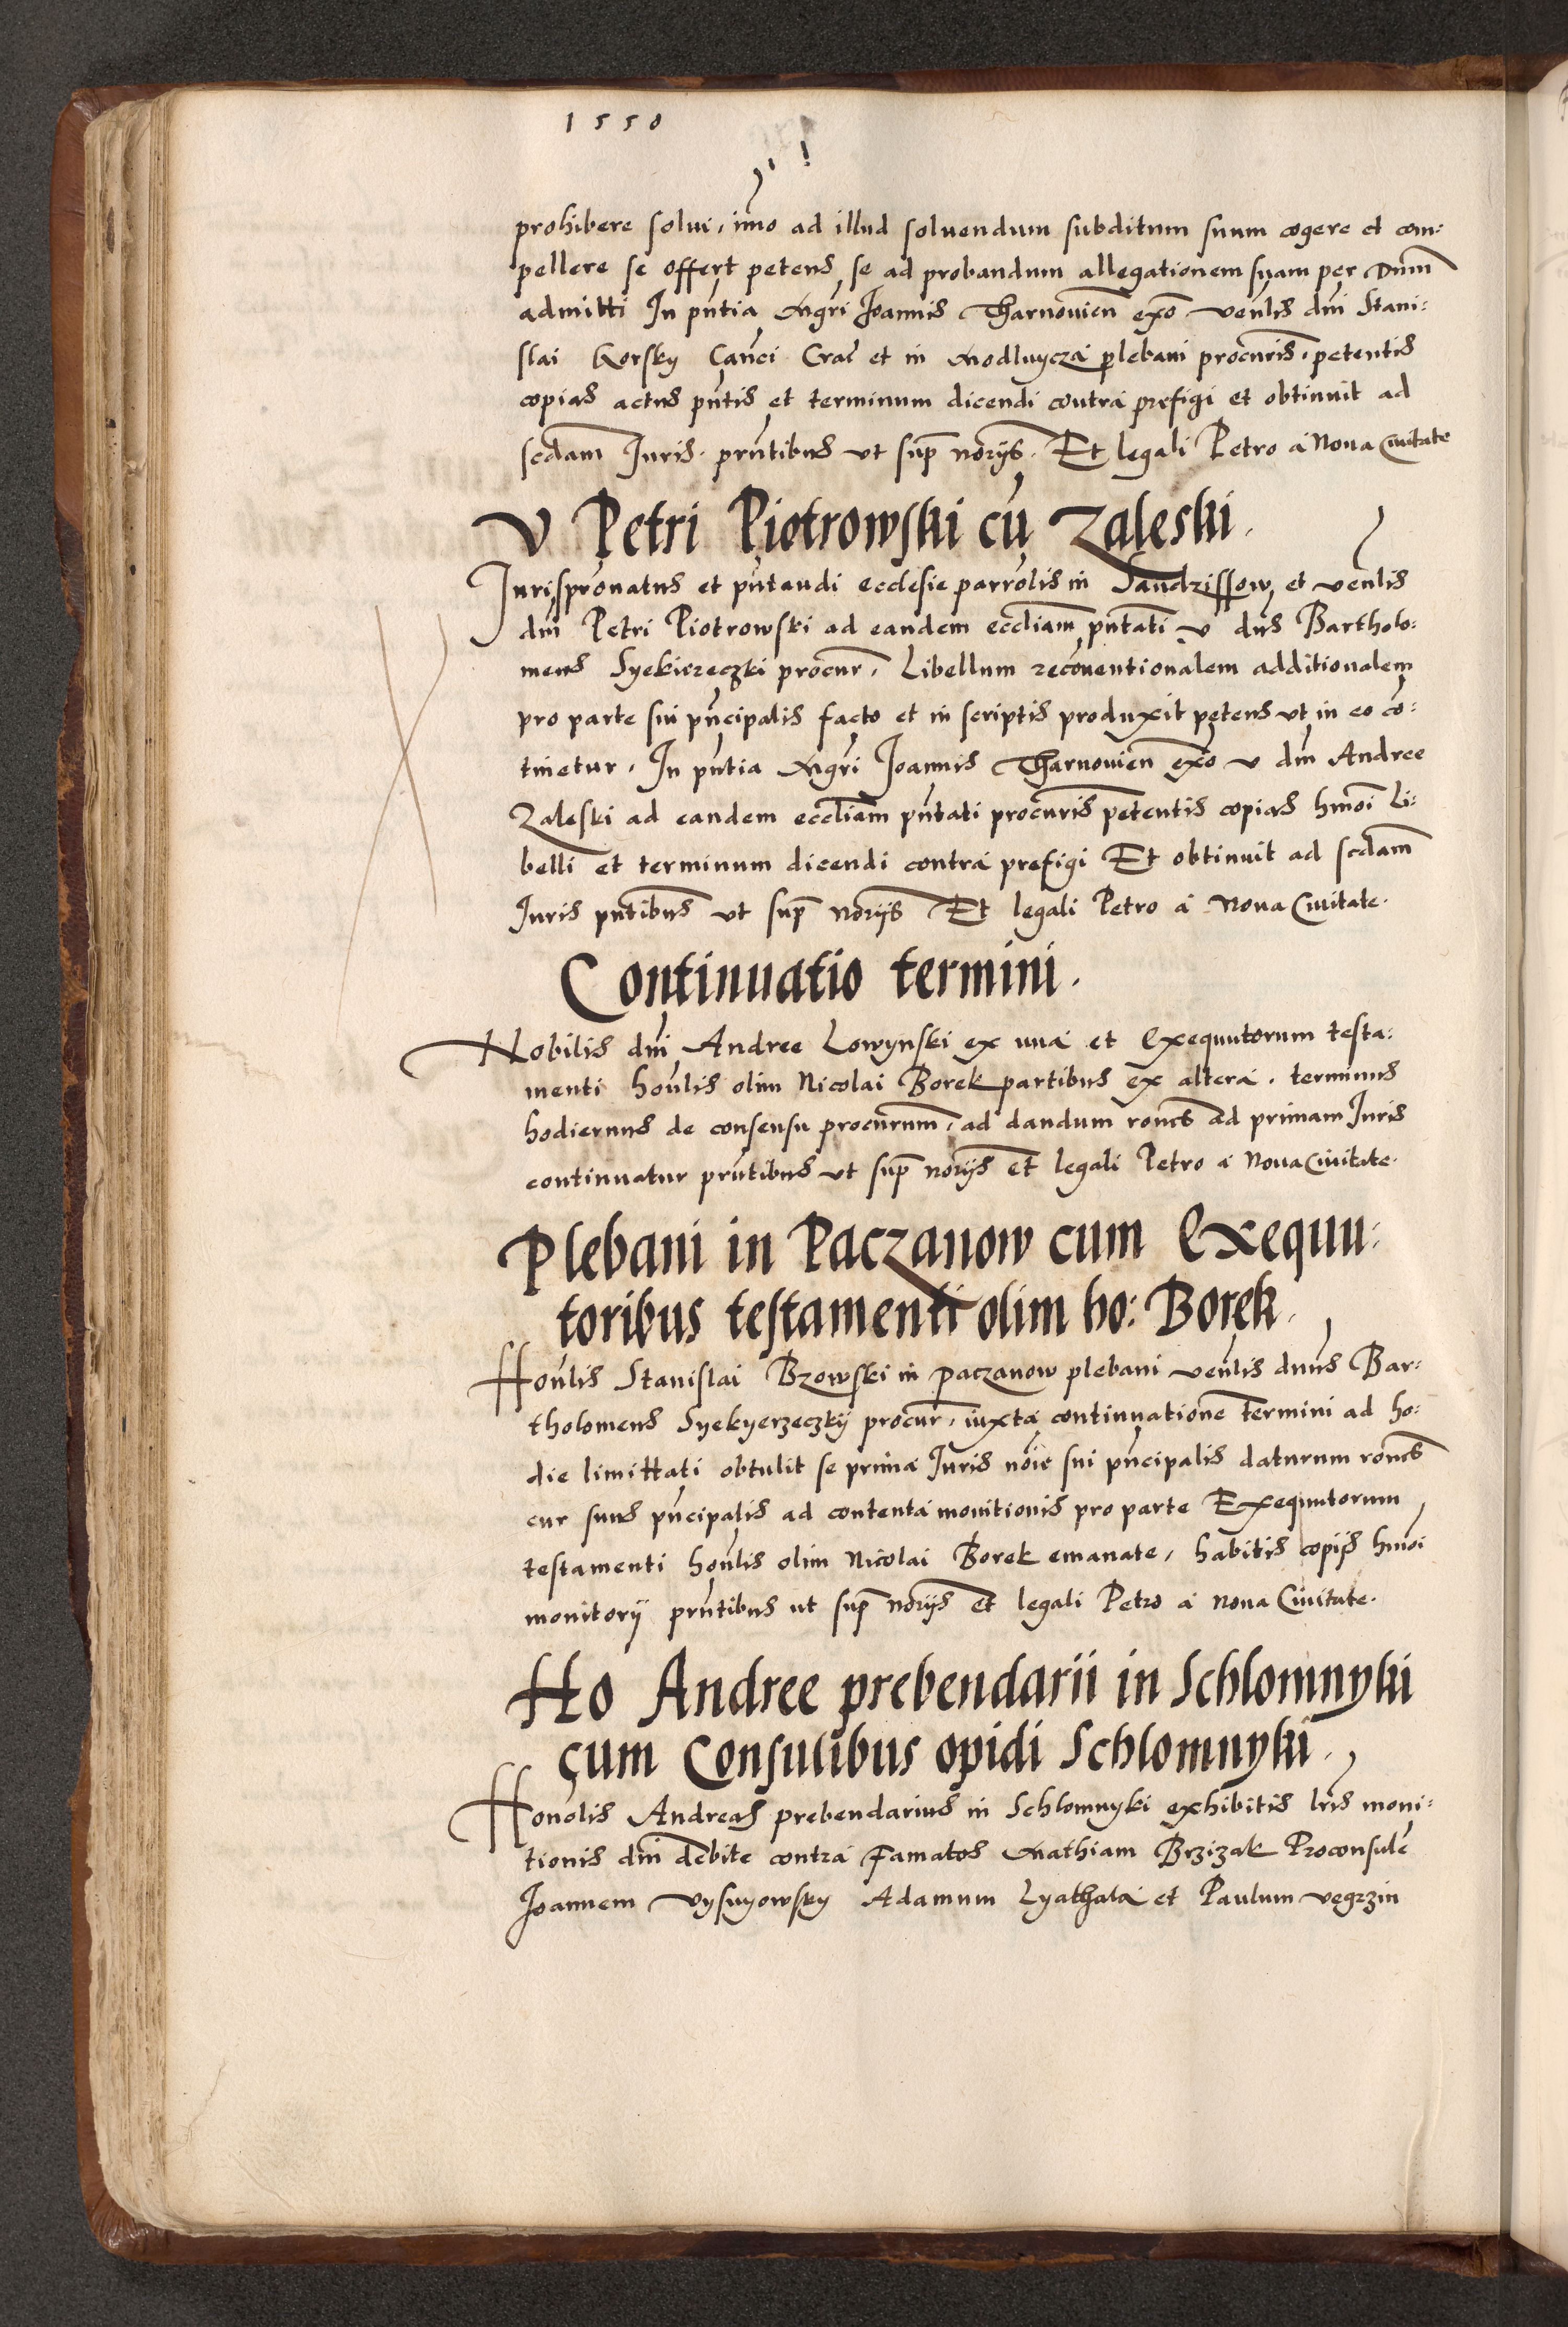 1550
prohibere solui, imo ad illud soluendum subditum suum cogere et com:
pellere se offert petens se ad probandum allegationem suam per dnm
admitti In pntia Mgri Joannis Tharnouien exo venlis dni Stani:
slai Korsky Canci Crac et in Modlnycza plebani procuris, petentis
copias actus pntis et terminum dicendi contra prefigi et obtinuit ad
scdam Juris. prntibus vt sup norijs. Et legali Petro a Noua Ciuitate
V Petri Piotrowski cu Zaleski.
Jurispronatus et pntandi ecclesie parrolis in Sandzissow et venlis
dni Petri Piotrowski ad eandem eccliam pntati v dns Bartholo:
meus Syekierzeczki procur, Libellum reconuentionalem additionalem
pro parte sui pncipalis facto et in scriptis produxit petens vt in eo co:
tinetur. In pntia Mgri Joannis Tharnouien exo v dni Andree
Zaleski ad eandem eccliam pntati procuris petentis copias hmoi Li:
belli et terminum dicendi contra prefigi Et obtinuit ad scdam
Juris pntibus vt sup norijs Et legali Petro a Noua Ciuitate.
Continuatio termini.
Nobilis dni Andree Lowynski ex una et Exequutorum testa:
menti honlis olim Nicolai Borek partibus ex altera. terminus
hodiernus de consensu procurum, ad dandum roncs ad primam Juris
continuatur prntibus vt sup norijs et legali Petro a Noua Ciuitate.
Plebani in Paczanow cum Exequu:
toribus testamenti olim ho: Borek.
Honlis Stanislai Bzowski in Paczanow plebani venlis dnus Bar:
tholomeus Syekyerzeczky procur, iuxta continuatione termini ad ho:
die limittati obtulit se prima Juris noie sui pncipalis daturum roncs
cur suus pncipalis ad contenta monitionis pro parte Exequutorum
testamenti honlis olim Nicolai Borek emanate, habitis copijs hmoi
monitorij prntibus ut sup norijs et legali Petro a Noua Ciuitate.
Ho Andree prebendarii in Schlomnyki
cum Consulibus opidi Schlomnyki.
Honolis Andreas prebendarius in Schlomnyki exhibitis lris moni:
tionis dni debite contra Famatos Mathiam Brzizak Proconsule
Joannem Vysnyowsky Adamum Lyathala et Paulum Vegrzin